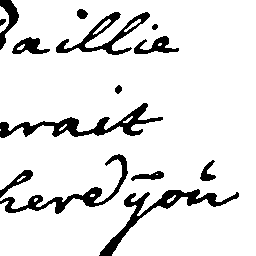 Baillie
wait
here you